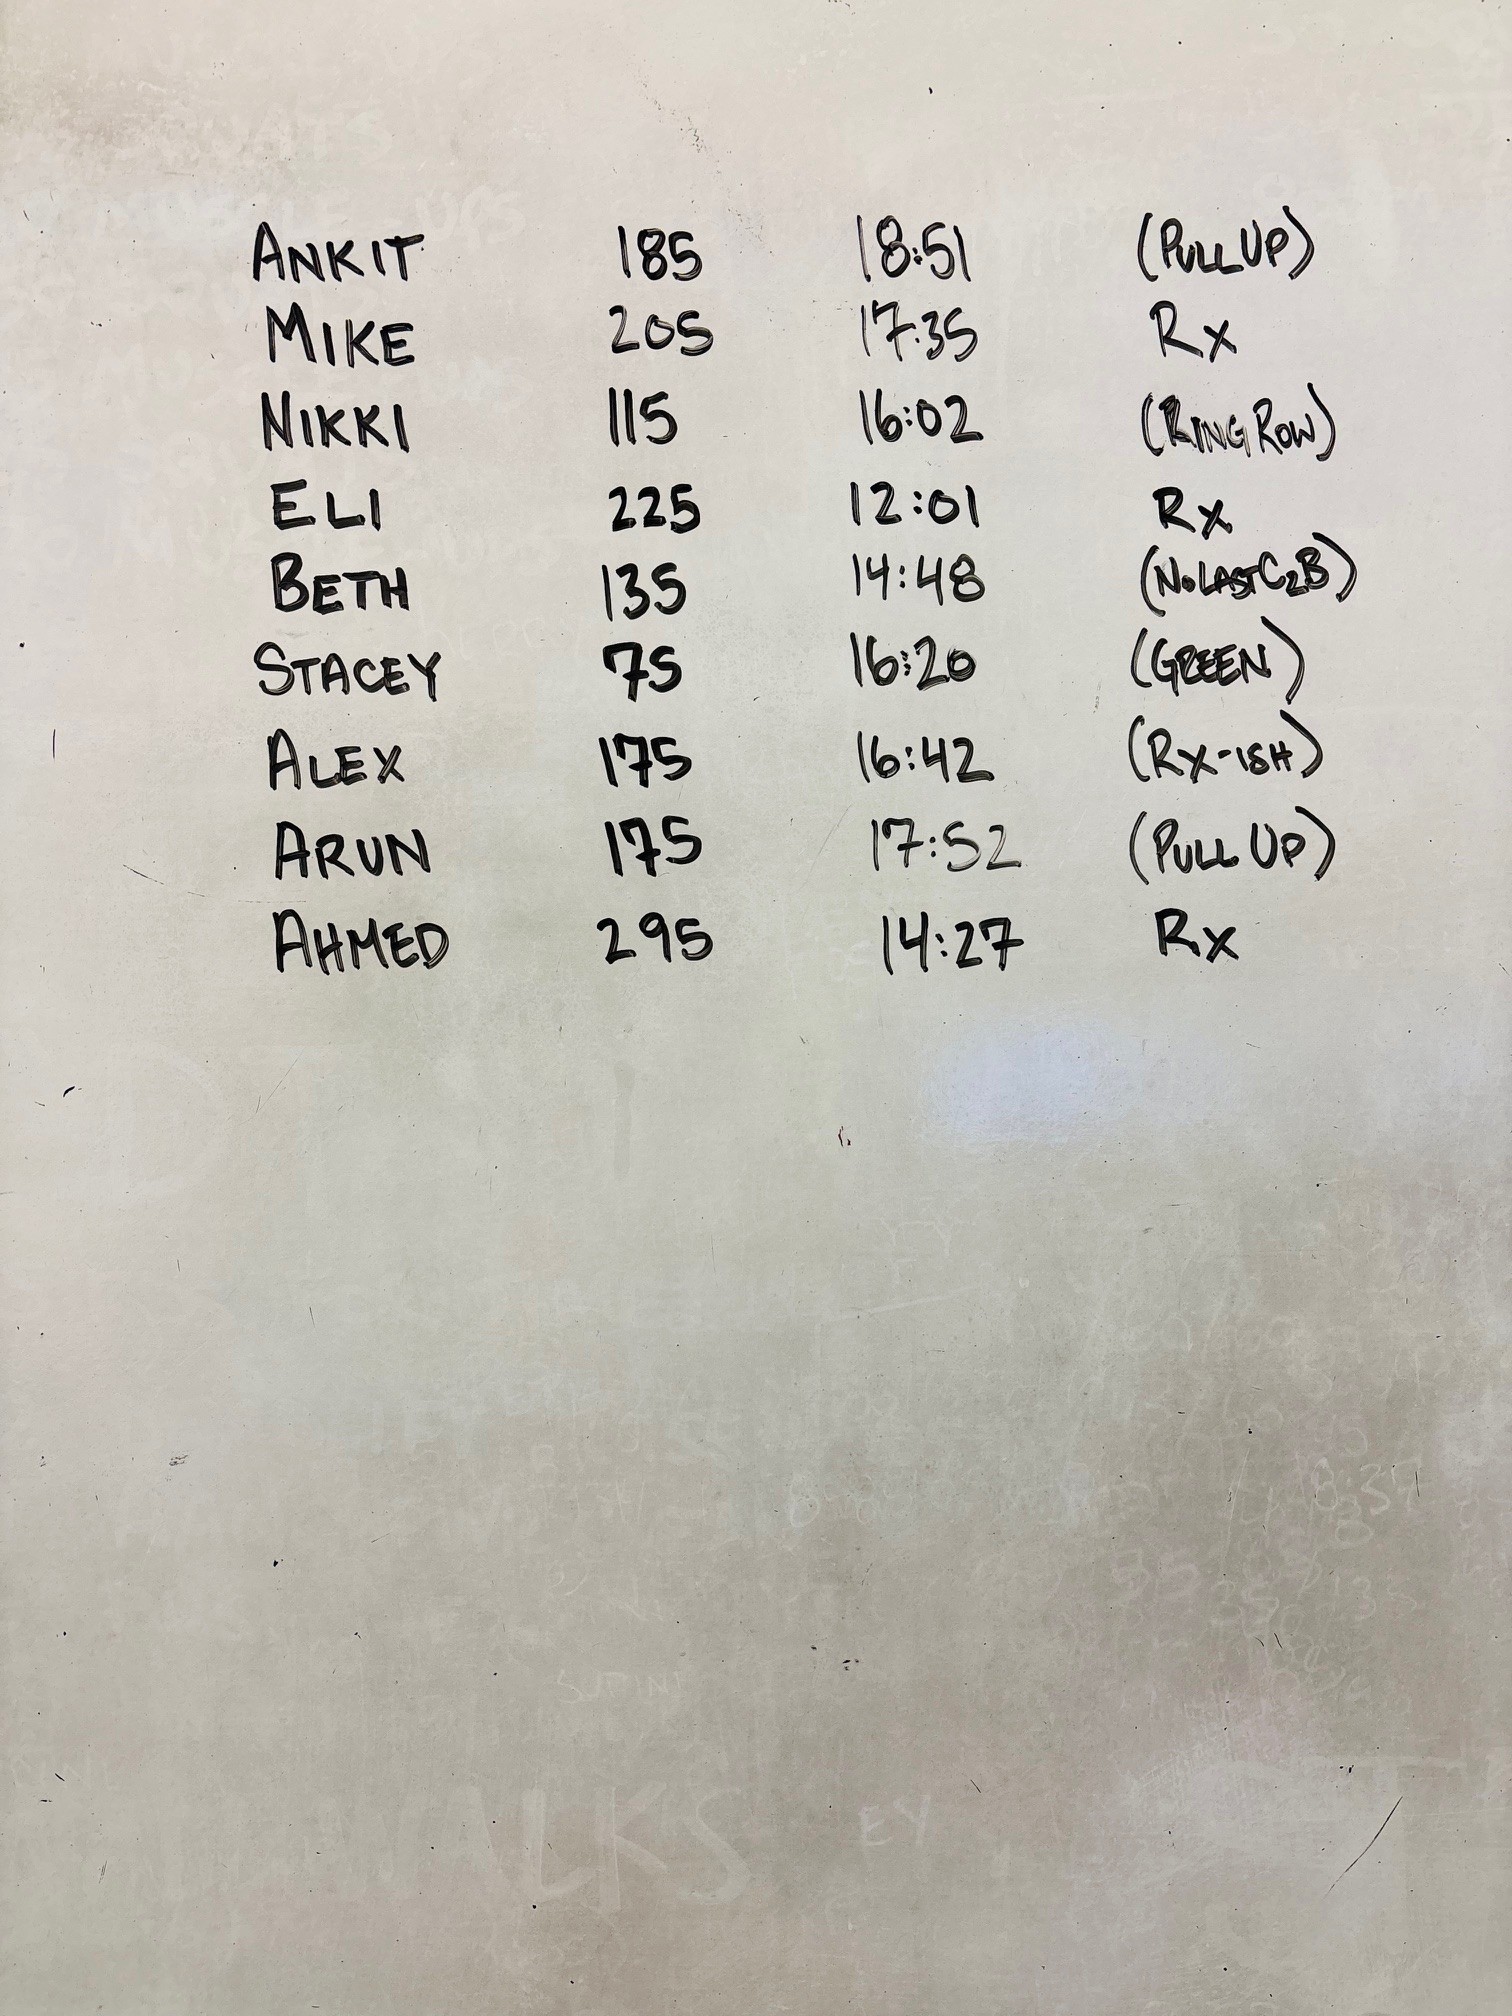 ANKIT 185 18:51 (PULL UP)
MIKE 205 17:35 Rx
NIKKI 115 16:02 (RING ROW)
ELI 225 12:01 Rx
BETH 135 14:48 (NO LAST C2B)
STACEY 75 16:20 (GREEN)
ALEX 175 16:42 (RX-ISH)
ARUN 175 17:52 (PULL UP)
AHMED 295 14:27 Rx